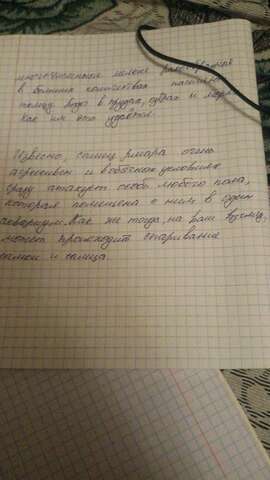 многочисленные мелкие
в больших количествах населяют
толщу воды в прудах, озёрах и морях
как им это удаётся.
Известно, самец омара очень
агрессивен и в обычных условиях
сразу атакует особь любого пола,
которая помещена с ним в один
аквариум. Как же тогда, на ваш взгляд,
может происходит спаривание
самки и самца.